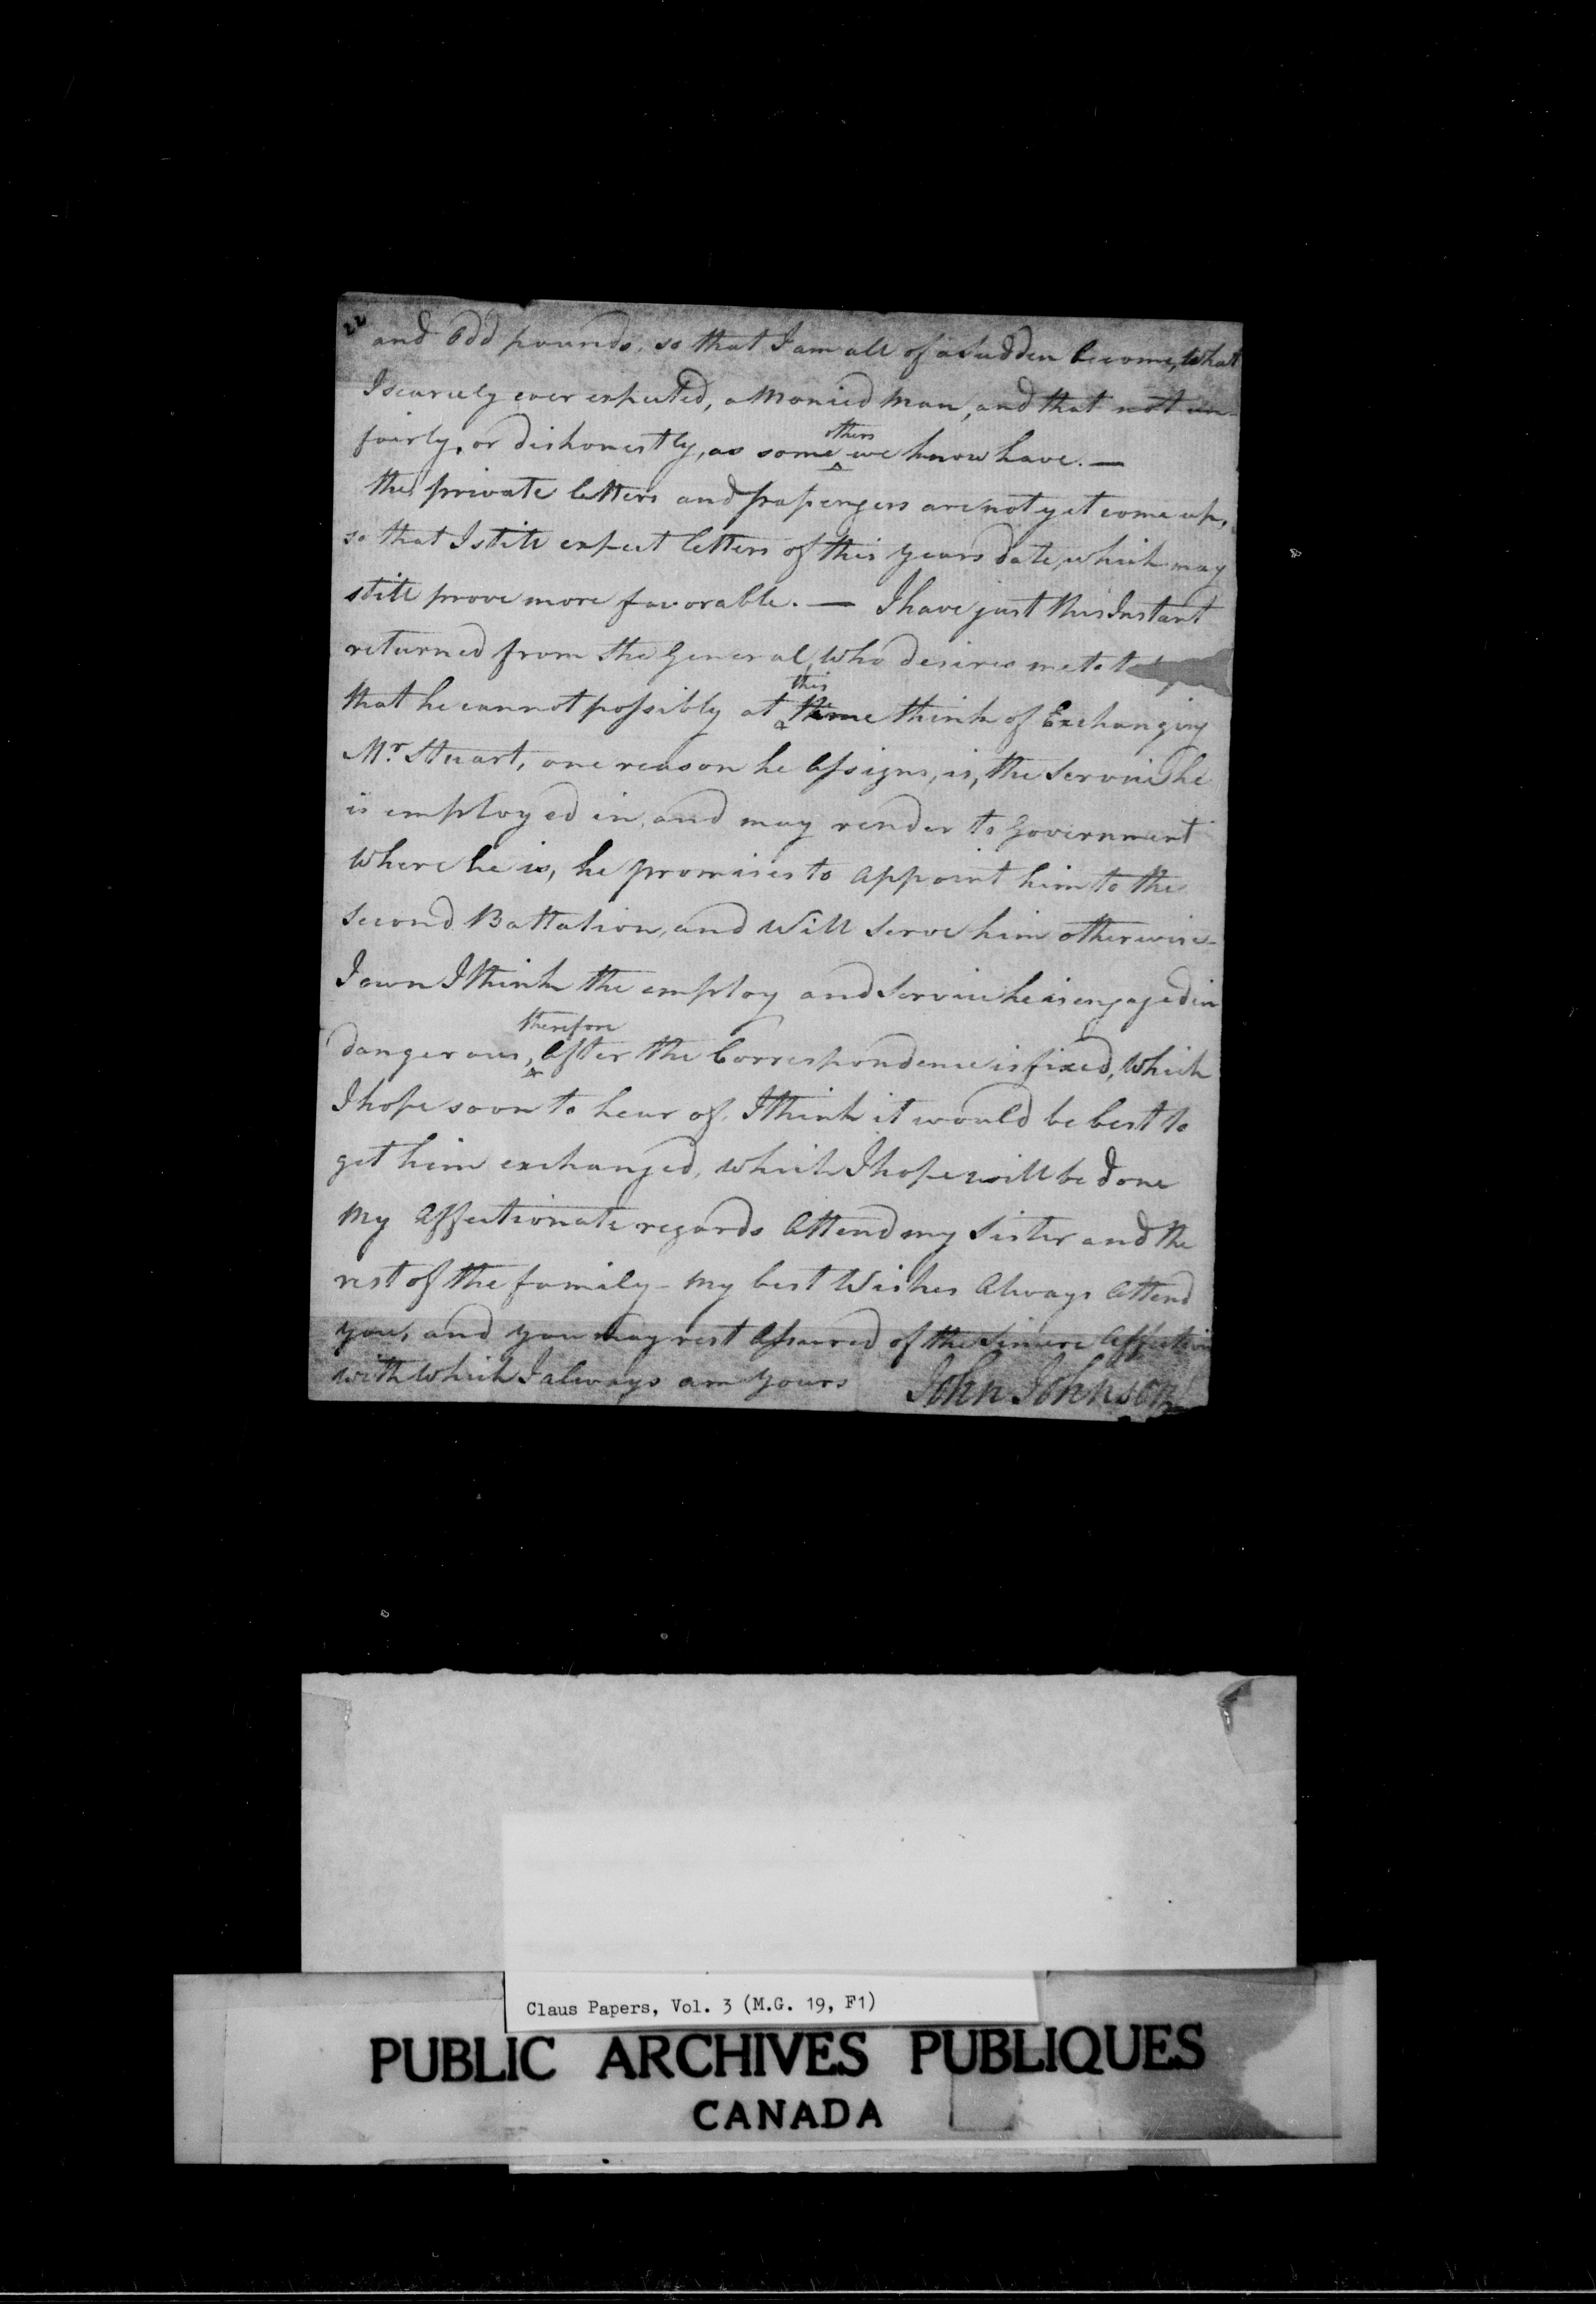 22
and Odd pounds, so that I am all of a Sudden become, What
I scarcely ever expected, a Monied Man, and that not un-
fairly, or dishonestly, as some others we know have. —
the private letters and passengers are not yet come up,
so that I still expect letters of this years date, which may
still prove more favorable. — I have just this Instant
returned from the General, Who desires me to t
that he cannot possibly at this time think of Exchanging
Mr. Stuart, one reason he assigns, is, the Service he
is employed in, and may render to Government
Where he is, he promises to appoint him to the
Second Battalion, and Will Serve him otherwise-
I own I think the employ and Service he is engaged in
dangerous, therefore After the Correspondence is fixed, Which
I hope soon to hear of, I think it would be best to
get him exchanged, which I hope will be done
My Affectionate regards Attend my Sister and the
rest of the family - My best Wishes Always Attend
you, and you may rest Assured of the Sincere Affection
with Which I always am Yours John Johnson
Claus Papers, Vol. 3 (M.G. 19, F1)
PUBLIC ARCHIVES PUBLIQUES
CANADA